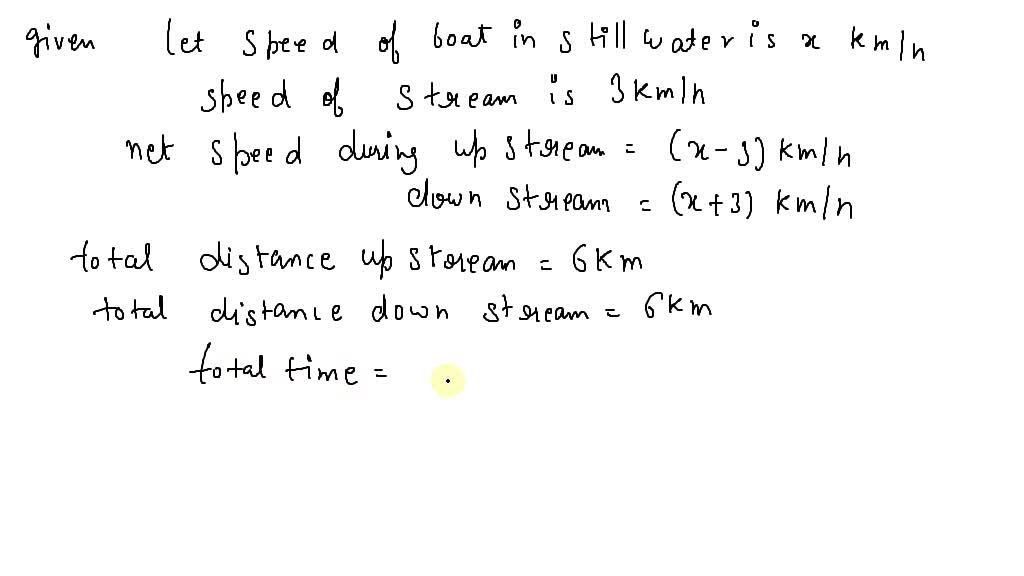 given let speed of boat in still water is x km/h
speed of stream is 3km/h
net speed during up stream = (x-3) km/h
down stream = (x+3) km/h
total distance up stream = 6km
total distance down stream = 6km
total time =